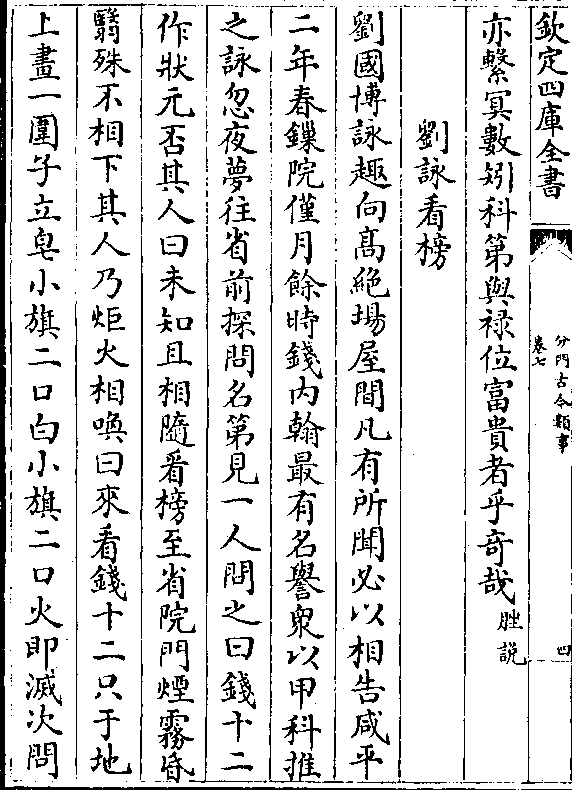 欽定四庫全書
分門古今類事
卷七
四
亦繫冥數矧科第與禄位富貴者乎奇哉 脞說
劉詠看榜
劉國博詠趣向髙絶場屋間凡有所聞必以相告咸平
二年春鏁院僅月餘時錢内翰最有名譽衆以甲科推
之詠忽夜夢往省前探問名第見一人問之曰錢十二
作狀元否其人曰未知且相隨看榜至省院門煙霧昏
翳殊不相下其人乃炬火相喚曰來看錢十二只于地
上畫一圍子立皂小旗二口白小旗二口火即滅次問